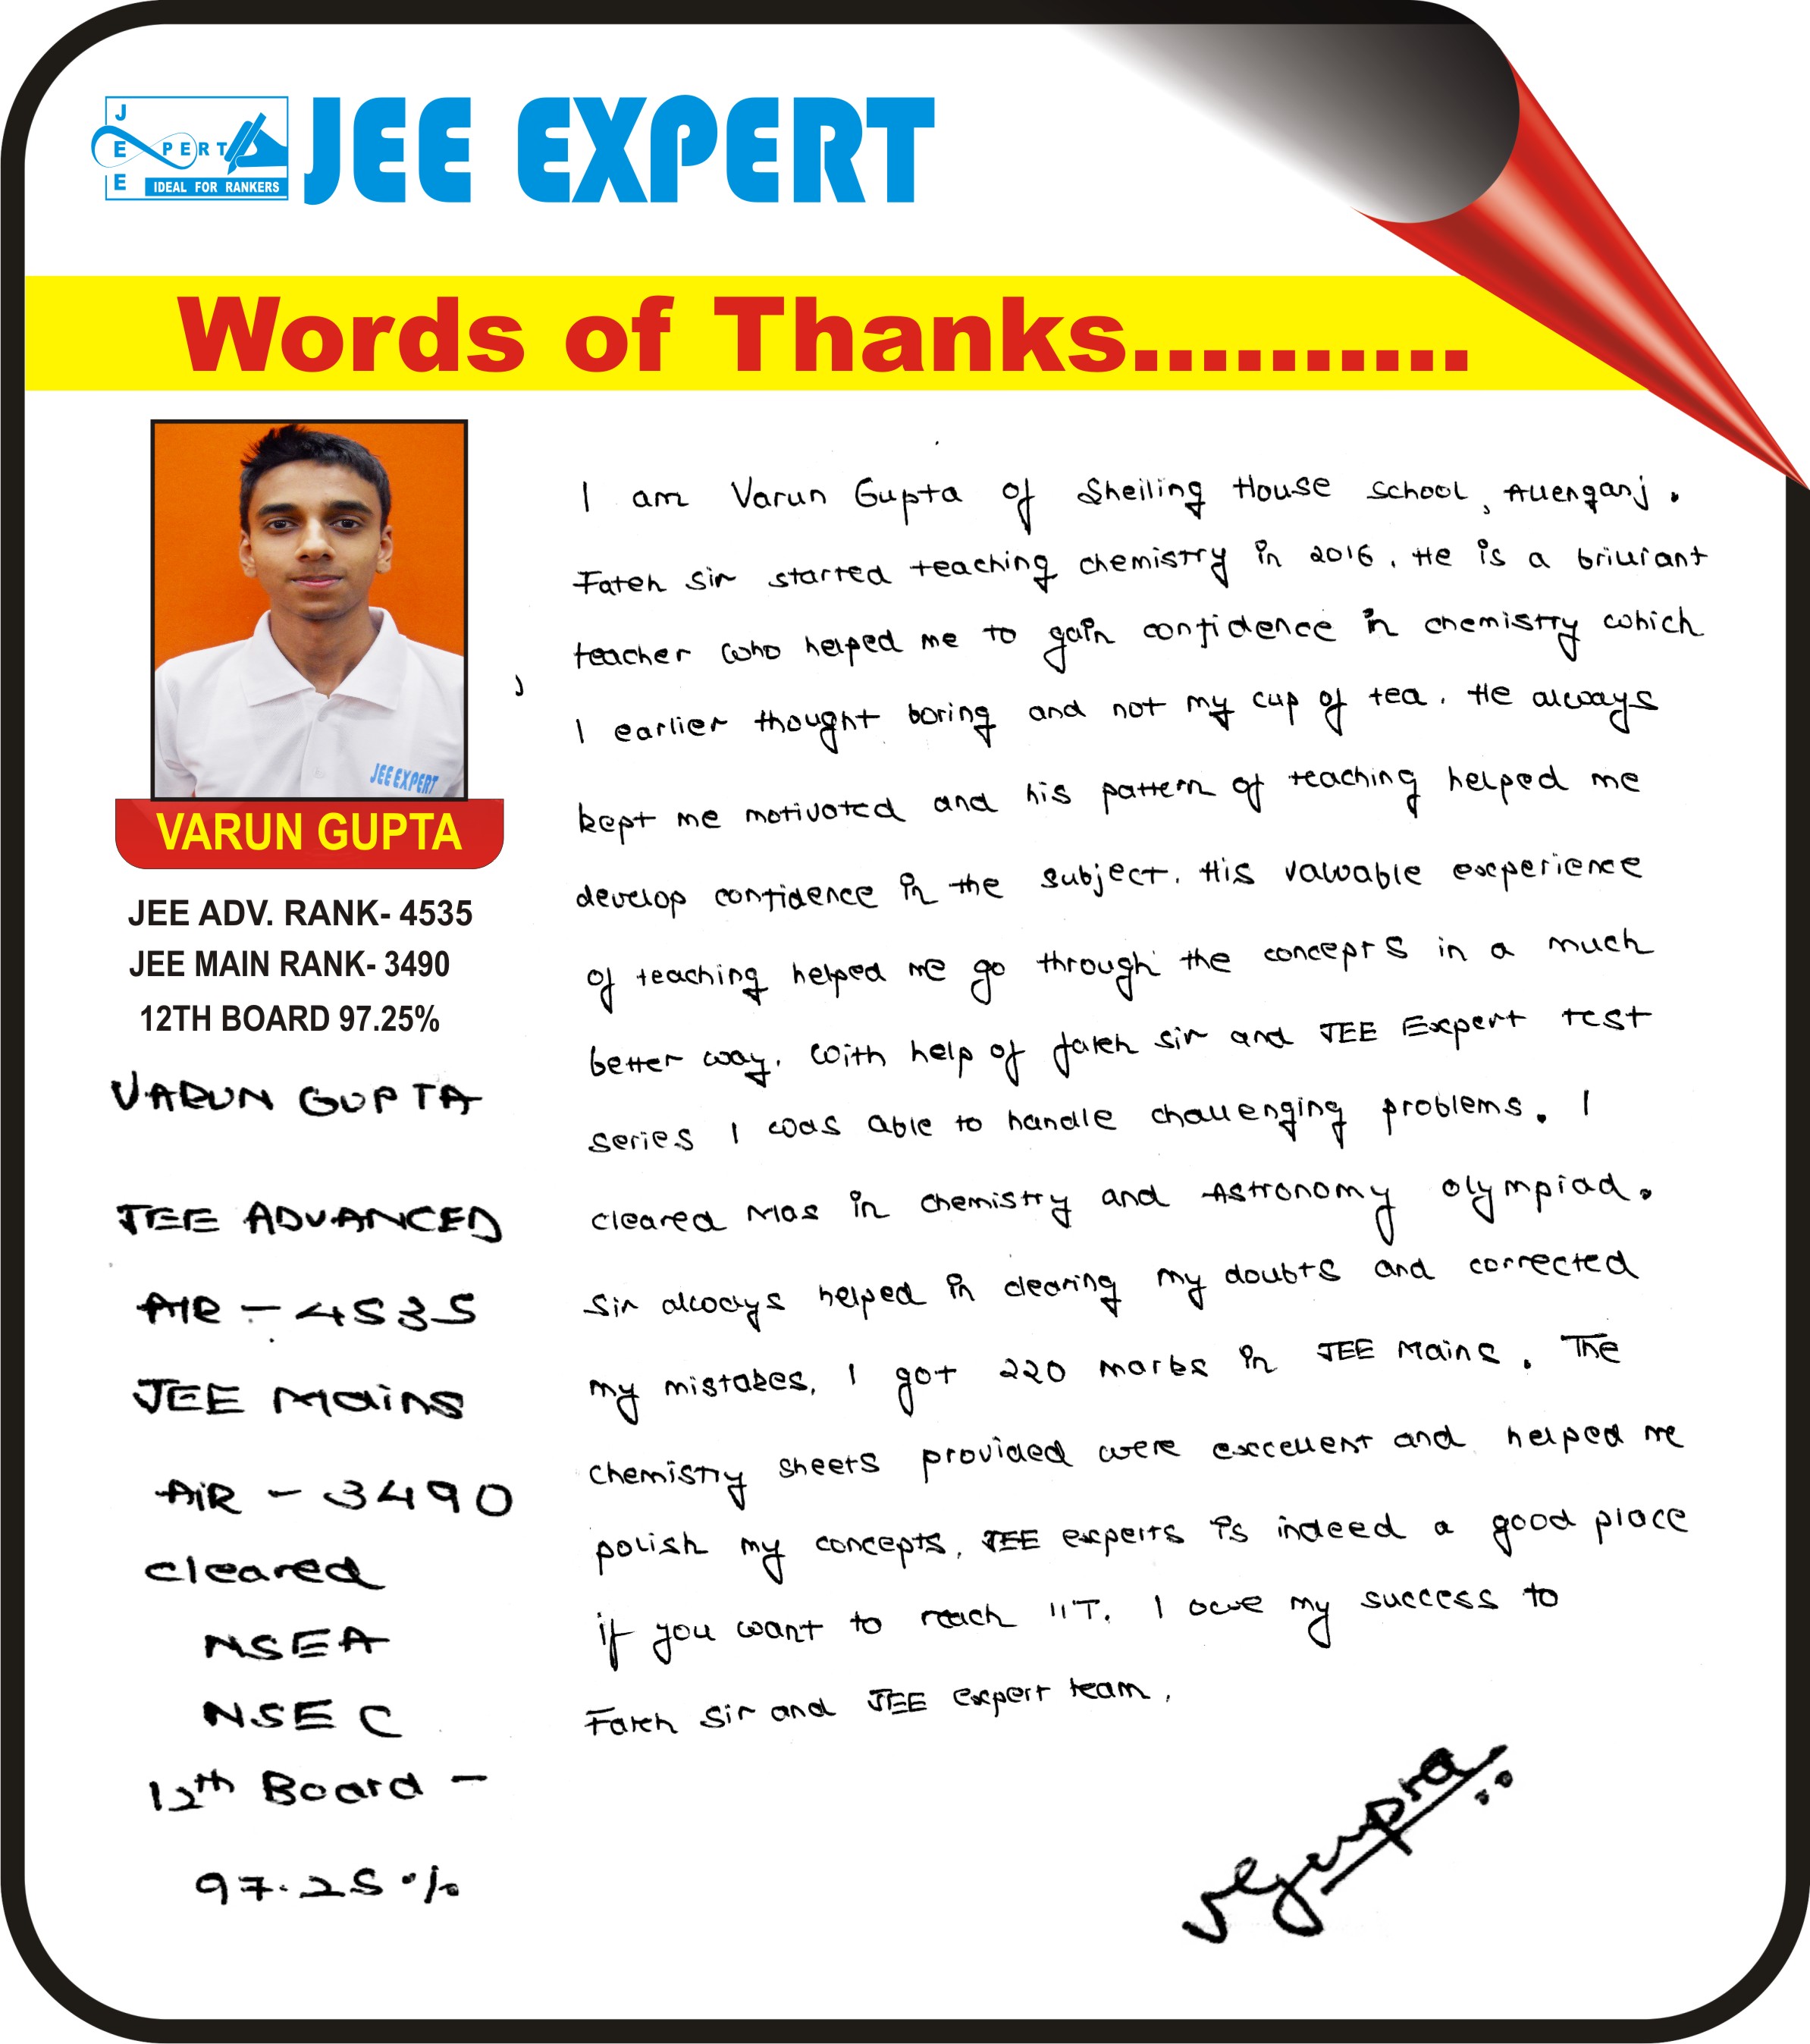 J
E XPERT
E IDEAL FOR RANKERS
JEE EXPERT
Words of Thanks..........
JEE EXPERT
VARUN GUPTA
JEE ADV. RANK- 4535
JEE MAIN RANK- 3490
12TH BOARD 97.25%
VARUN GUPTA
JEE ADVANCED
AIR - 4535
JEE Mains
AIR - 3490
cleared
NSEA
NSEC
12th Board -
97.25 %
I am Varun Gupta of Sheiling House School, Allenganj.
Fateh Sir started teaching chemistry in 2016. He is a brilliant
teacher who helped me to gain confidence in chemistry which
I earlier thought boring and not my cup of tea. He always
kept me motivated and his pattern of teaching helped me
develop confidence in the subject. His valuable experience
of teaching helped me go through the concepts in a much
better way. With help of Fateh Sir and JEE Expert test
series I was able to handle challenging problems. I
cleared Mas in Chemistry and Astronomy Olympiad.
Sir always helped in clearing my doubts and corrected
my mistakes. I got 220 marks in JEE Mains. The
chemistry sheets provided were excellent and helped me
polish my concepts. JEE experts is indeed a good place
if you want to reach IIT. I owe my success to
Fateh Sir and JEE expert team.
VGupta